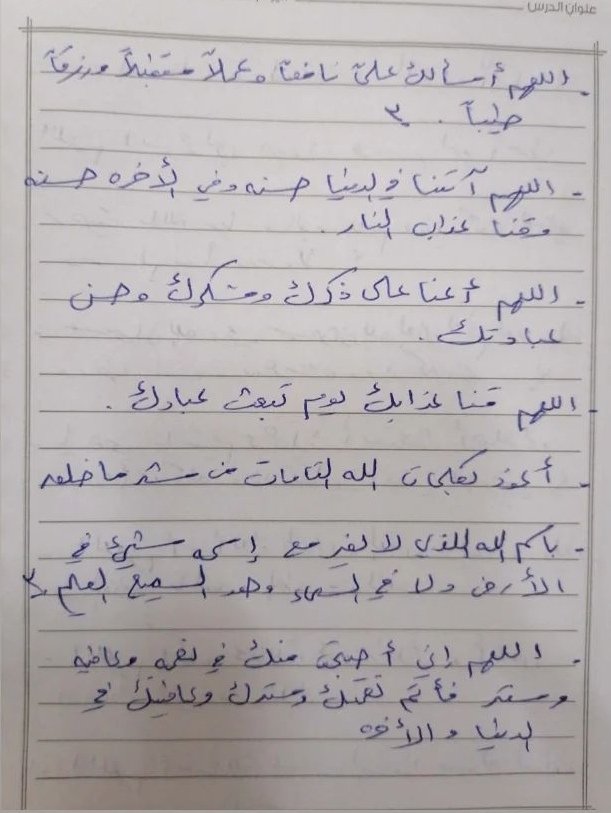 عنوان الدرس
- اللهم أسألك علماً نافعاً وعملاً متقبلاً ورزقاً
طيباً . ٣
- اللهم آتنا في الدنيا حسنه وفي الأخره حسنه
وقنا عذاب النار .
- اللهم أعنا على ذكرك وشكرك وحسن
عبادتك .
- اللهم قنا عذابك يوم تبعث عبادك .
- أعوذ بكلمات الله التامات من شر ما خلق
- باسم الله اللذي لا يضر مع إسمه شيئ في
الأرض ولا في السماء وهو السميع العليم ٣
- اللهم إني أصبحت منك في نعمه وعافيه
وستر فأتم نعمتك وسترك وعافيتك في
الدنيا والأخره